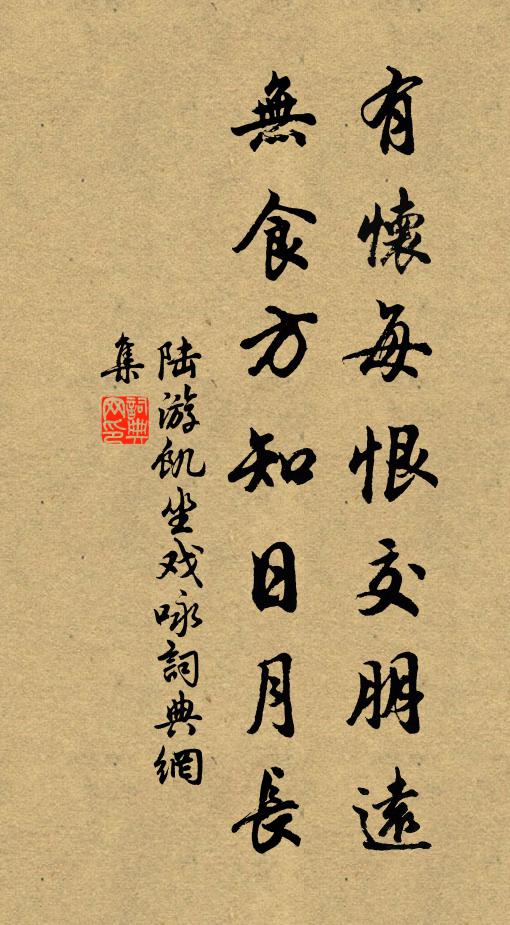 有懷每恨交朋遠
無食方知日月長
陆游飢坐戏咏詞典網
集
詞典网印